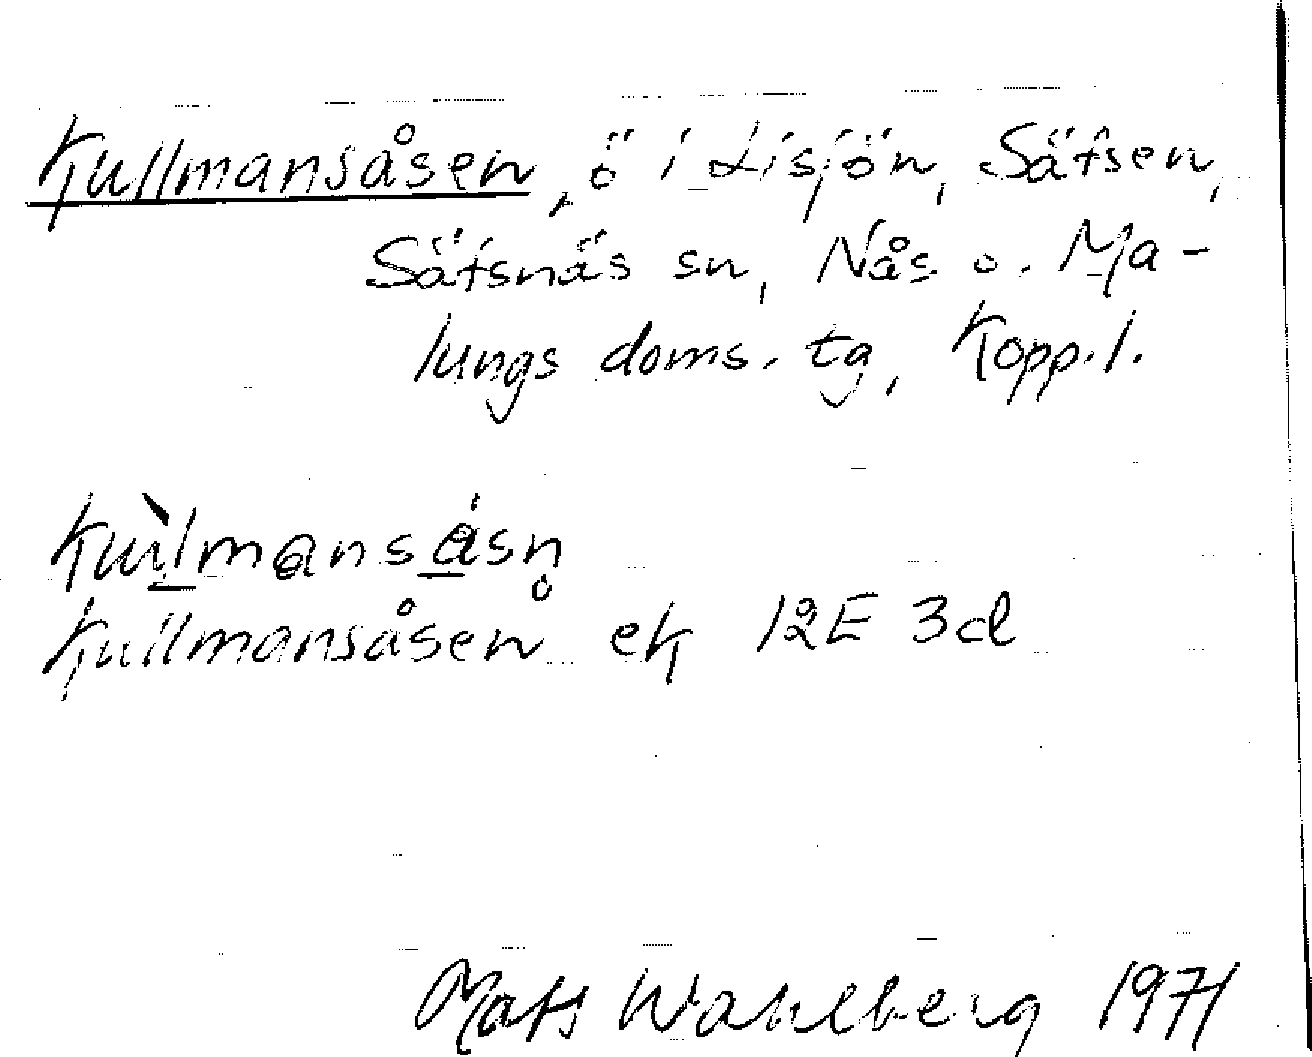 Kullmansåsen, ö i Lisjön, Säfsen,
Säfsnäs sn, Nås o. Ma-
lungs doms. tg, Kopp. l.
Kullmansåsen ek 12E 3d
Mats Wahlberg 1971